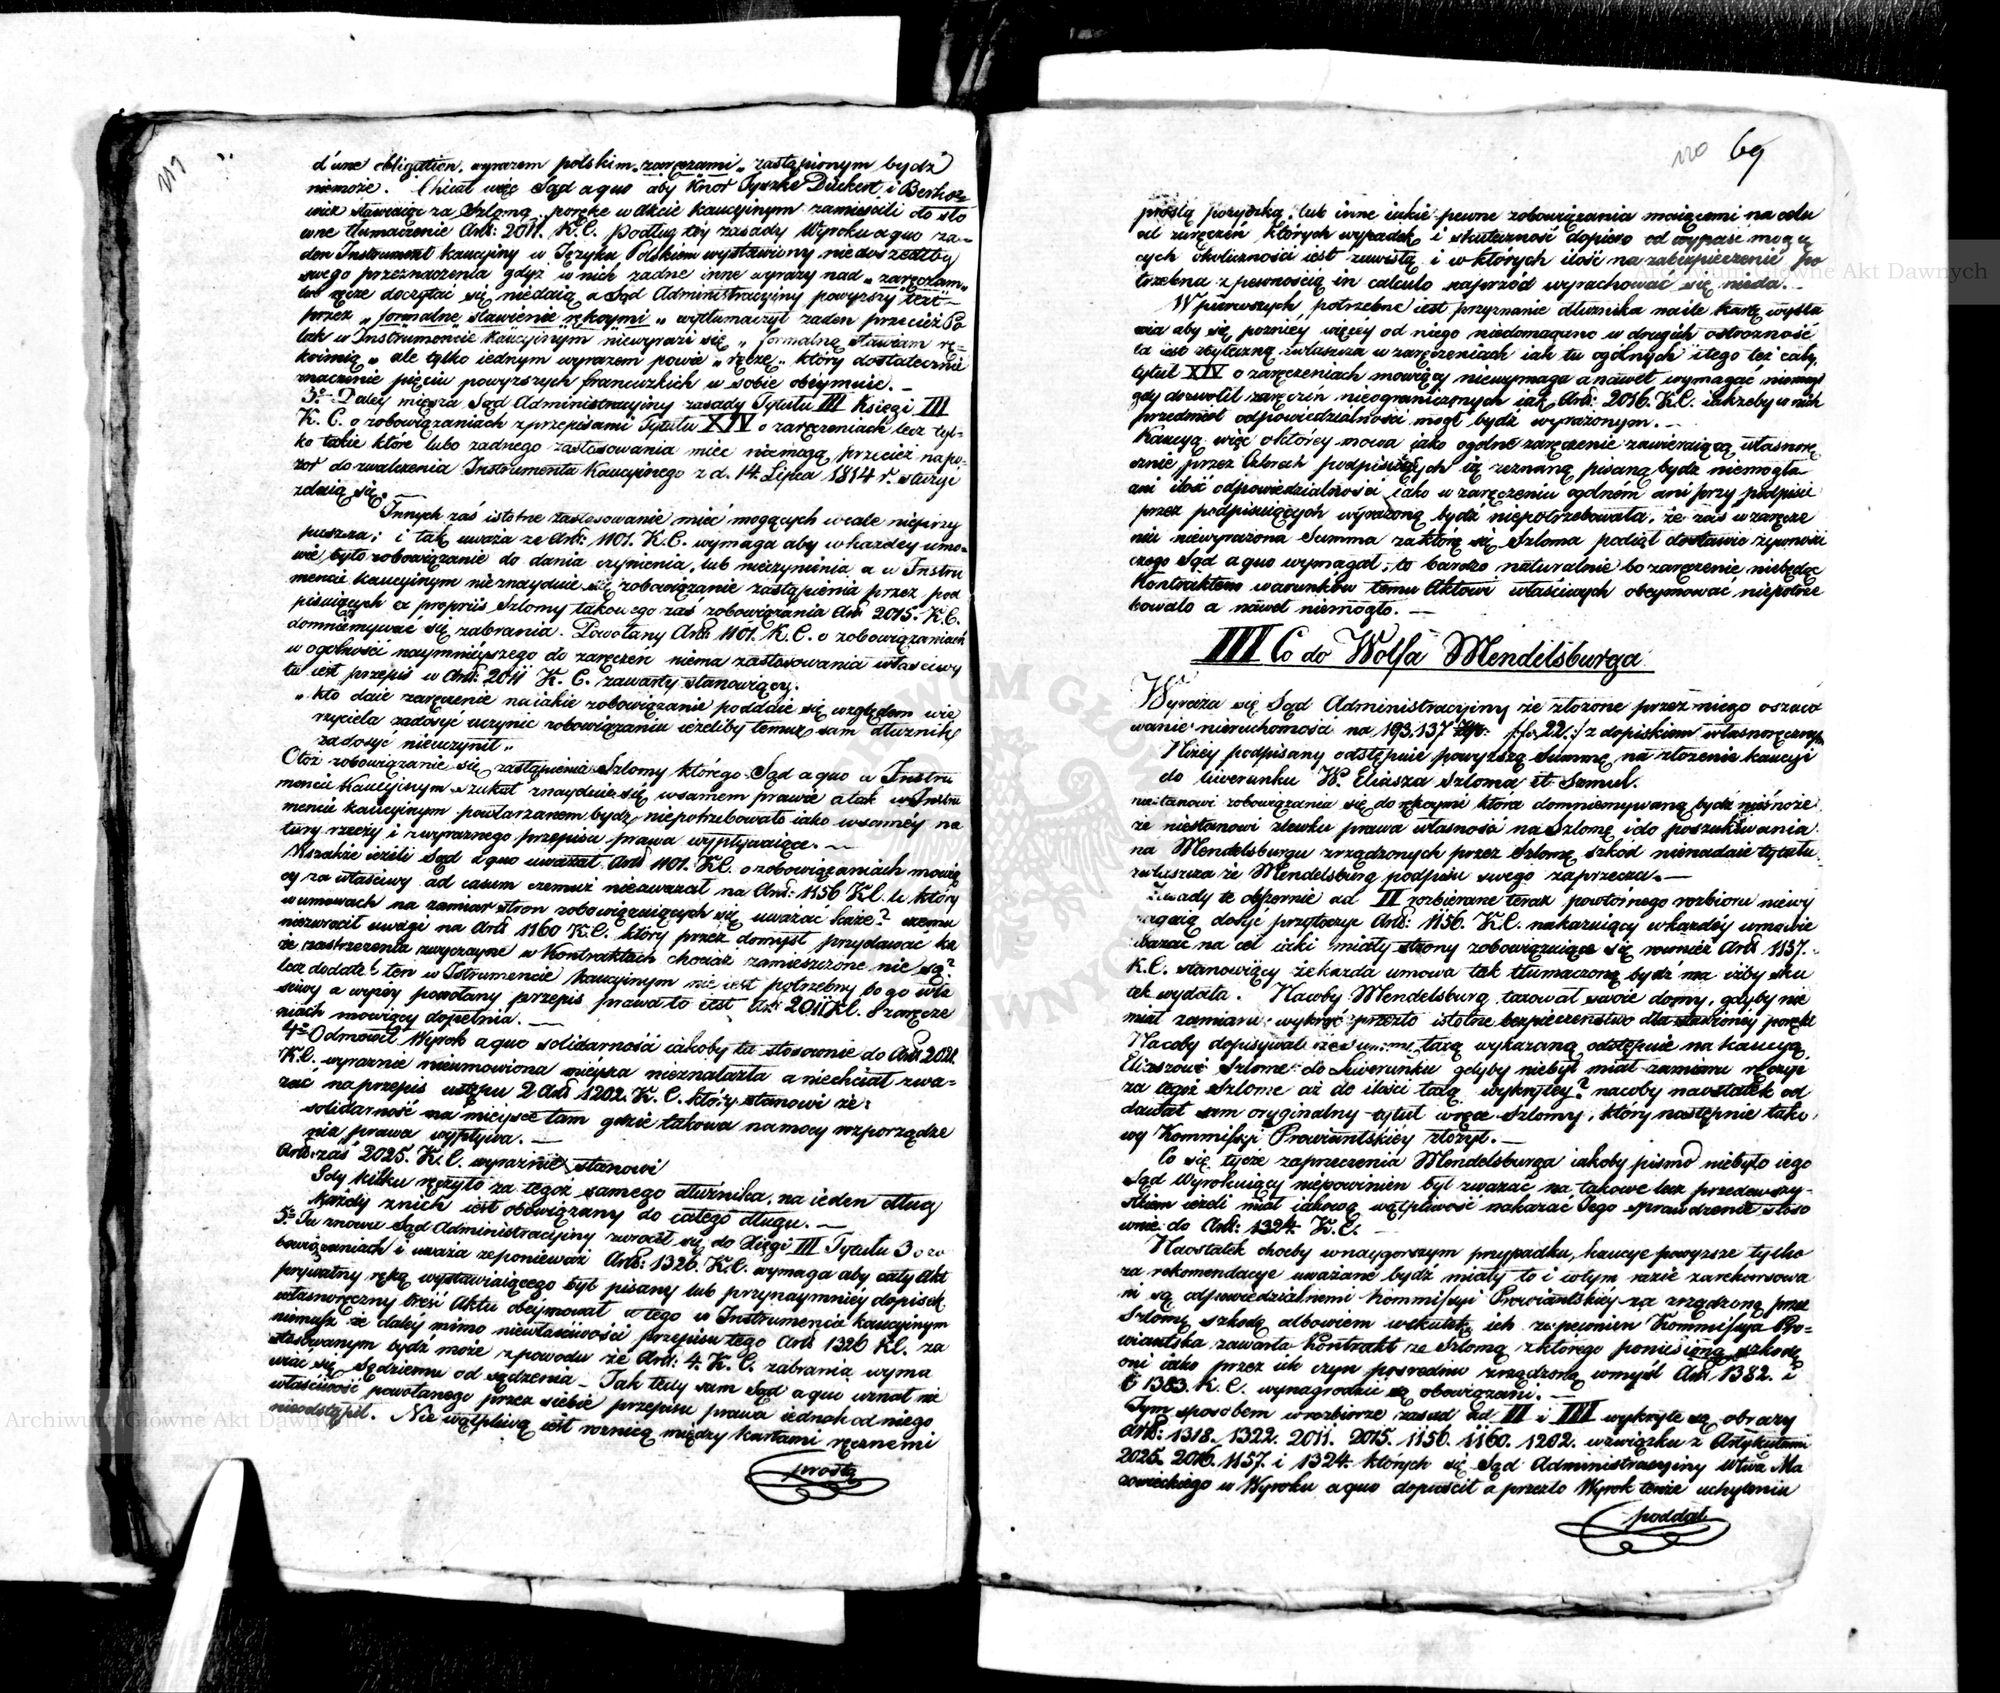 119
d'une obligation, wyrazem polskim „zaręczami„ zastąpionym bydź
niemoże. Chciał więc Sąd a quo aby Knor Tyszke Duckert i Berksz
wicz stawiaiąc za Szlomą porękę w akcie kaucyinym zamieścili do sło
wne tłumaczenie Artt: 2011. K.C. podług tey zasady Wyroku a quo ża-
den Instrument kaucyiny w Języku Polskiem wystawiony niedoszedłby
swego przeznaczenia gdyż w nich żadne inne wyrazy nad „zaręczam„
lub ręczę doczytać się niedaią a Sąd Administracyiny powyższy text
przez „formalne stawienie rękoymi„ wytłumaczył żaden przecież Po
lak w Instrumencie kaucyinym niewyrazi się „formalną stawiam rę-
koimią„ ale tylko iednym wyrazem powie „ręczę„ który dostatecznie
znaczenie pięciu powyższych francuzkich w sobie obeymuie. –
3o Daley miesza Sąd Administracyiny zasady Tytułu III Księgi III
K. C. o zobowiązaniach z przepisami Tytułu XIV o zaręczeniach lecz tyl-
ko takie które lubo żadnego zastosowania mieć niemogą przecież na po-
zor do zwalczenia Instrumentu Kaucyinego z d. 14. Lipca 1814 r. służyć
zdaią się. –
Innych zaś istotne zastosowanie mieć mogących wcale nieprzy
puszcza; i tak uważa ze Artt: 1101. K.C. wymaga aby w każdey umo-
wie było zobowiązanie do dania czynienia, lub nieczynienia a w Instru
mencie kaucyinym nieznayduie się zobowiązanie zastąpienia przez pod
pisuiących ex propriis Szlomy takowego zaś zobowiązania Artt 2015. K.C.
domniemywać się zabrania. Powołany Artt: 1101. K.C. o zobowiązaniach
w ogólności naymnieyszego do zaręczeń niema zastosowania właściwy
tu iest przepis w Artt: 2011 K. C. zawarty stanowiący.
„kto daie zaręczenie na iakie zobowiązanie poddaie się względem wie
rzyciela zadosyć uczynić zobowiązaniu ieżeliby temuż sam dłużnik
zadosyć nieuczynił„
Otóż zobowiązanie się zastąpienia Szlomy którego Sąd a quo w Instru
mencie Kaucyinym szukał znayduie się w samem prawie a tak w Instru
mencie kaucyinym powtarzanem bydź niepotrzebowało iako w samey na
tury rzeczy i z wyraznego przepisu prawa wypływaiące. –
Wszakże ieżeli Sąd a quo uważał Artt 1101. K.C. o zobowiązaniach mowią
cy za właściwy ad casum czemuż nieuważał na Artt: 1156 K.C. w który
w umowach na zamiar stron zobowiązuiących się uważać każe? czemu
niezwrócił uwagi na Artt 1160 K.C. który przez domysł przydawać ka
że zastrzeżenia zwyczayne w Kontraktach chociaż zamieszczone nie są?
lecz dodatek ten w Istrumencie kaucyinym nie iest potrzebny bo go wła
ściwy a wyżey powołany przepis prawa to iest Art: 2011 K.C. o zaręcze
niach mowiący dopełnia. –
4o Odmowił Wyrok a quo solidarności iakoby ta stosownie do Artt 2021
K.C. wyraznie nieumowiona mieysca nieznalazła a niechciał zwa-
żać na przepis ustępu 2 Artt 1202. K. C. który stanowi że:
solidarność ma mieysce tam gdzie takowa na mocy rozporządze
nia prawa wypływa. –
Artt: zaś 2025. K.C. wyraznie stanowi
Gdy kilku ręczyło za tegoż samego dłużnika, na ieden dług
każdy z nich iest obowiązany do całego długu. –
5o Tu znowu Sąd Administracyiny zwrocił się do Xięgi III Tytułu 3o o zo
bowiązaniach i uważa że ponieważ Artt: 1326. K.C. wymaga aby cały Akt
prywatny ręką wystawiaiącego był pisany lub przynaymniey dopisek
własnoręczny treść Aktu obeymował a tego w Instrumencie kaucyinym
niemasz że daley mimo niewłaściwości przepisu tego Artt 1326 K.C. za
stosowanym bydź może z powodu że Artt: 4. K. C. zabrania wyma
wiać się Sędziemu od sądzenia – Tak tedy sam Sąd a quo uznał nie
właściwość powołanego przez siebie przepisu prawa iednak od niego
nieodstąpił. Nie wątpliwą iest roznicą między kartami ręcznemi
prostą
120 69
prostą pożyczką, lub inne iakie pewne zobowiązania maiącemi na celu
od zaręczeń których wypadek i skuteczność dopiero od wypaść mogą
cych okoliczności iest zawisłą i w których ilość na zabezpieczenie po
trzebna z pewnością in calculo naprzód wyrachować się nieda. –
W pierwszych potrzebne iest przyznanie dłużnika na ile kartę wysta
wia aby się pozniey więcey od niego niedomagano w drugich ostrożność
ta iest zbyteczną zwłaszcza w zaręczeniach iak tu ogólnych i tego też cały
tytuł XIV o zaręczeniach mowiący niewymaga a nawet wymagać niemogł
gdy dozwolił zaręczeń nieograniczonych iak Artt: 2016. K.C. iakżeby w nich
przedmiot odpowiedzialności mogł bydź wyrażonym. –
Kaucya więc o którey mowa iako ogólne zaręczenie zawieraiąca własnorę
cznie przez czterech podpisuiących ią zeznaną pisaną bydz niemogła
ani ilość odpowiedzialności iako w zaręczeniu ogólném ani przy podpisie
przez podpisuiących wyrażoną bydź niepotrzebowała, że zaś w zaręcze
niu niewyrażona Summa za którę się Szloma podiął dostawić żywności
czego Sąd a quo wymagał, to bardzo naturalnie bo zaręczenie niebędąc
Kontraktem warunków temu Aktowi właściwych obeymować niepotrze
bowało a nawet niemogło. –
III Co do Wolfa Mendelsburga
Wyraża się Sąd Administracyiny że złożone przez niego oszaco
wanie nieruchomości na 193.137 Złp: f. fo. 22. / z dopiskiem własnoręcznym
Niżey podpisany odstępuie powyższą Summę na złożenie kaucyi
do liwerunku W. Eliasza Szloma et Samul.
niestanowi zobowiązania się do rękoymi która domniemywaną bydź niemoże
że niestanowi zlewku prawa własności na Szlomę i do poszukiwania
na Mendelsburgu zrządzonych przez Szlomę szkód nienadaie tytułu
zwłaszcza że Mendelsburg podpisu swego zaprzecza. –
Zasady te obszernie ad II rozbierane teraz powtórnego rozbioru niewy
magaią dosyć przytoczyć Artt: 1156. K.C. nakazuiący w każdey umowie
uważać na cel iaki miały strony zobowiązuiące się rownież Artt 1157.
K.C. stanowiący że każda umowa tak tłumaczoną bydz ma iżby sku
tek wydała. Nacoby Mendelsburg taxował swoie domy, gdyby nie
miał zamiaru wykryć przezto istotne bezpieczenstwo dla stawioney poręki
Nacoby dopisywał że summę taxą wykazaną odstępuie na kaucyą
Eliaszowi Szlome do Liwerunku gdyby niebył miał zamiaru ręczyć
za tegoż Szlome aż do ilości taxą wykrytey? nacoby naostatek od
dawał sam oryginalny tytuł w ręce Szlomy, który następnie tako
wy Kommissyi Prowiantskiéy złożył. –
Co się tycze zaprzeczenia Mendelsburga iakoby pismo niebyło iego
Sąd Wyrokuiący niepowinien był zważać na takowe lecz przedewszy-
stkiem ieżeli miał iakową wątpliwość nakazać Jego sprawdzenie stoso
wnie do Artt: 1324. K. C. –
Naostatek choćby w naygorszym przypadku, kaucye powyższe tylko
za rekomendacye uważane bydź miały to i w tym razie zarekowsowa
ni są odpowiedzialnemi Kommissyi Prowiantskiéy za zrządzoną przez
Szlomę szkodę albowiem w skutek ich zapewnien Kommissya Pro-
wiantska zawarła Kontrakt ze Szlomą z którego poniesioną szkodę
oni iako przez ich czyn posrednio zrządzoną w myśl Artt 1382. i
1383. K. C. wynagrodzić są obowiązani. –
Tym sposobem w rozbiorze zasad ad II i III wykryte są obrazy
Artt: 1318. 1322. 2011. 2015. 1156. 1160. 1202. w związku z Artykułami
2025. 2016. 1157. i 1324. których się Sąd Administracyiny Wtwa Ma
zowieckiego w Wyroku a quo dopuścił a przezto Wyrok tenże uchyleniu
poddał
Archiwum Główne Akt Dawnych
Archiwum Główne Akt Dawnych